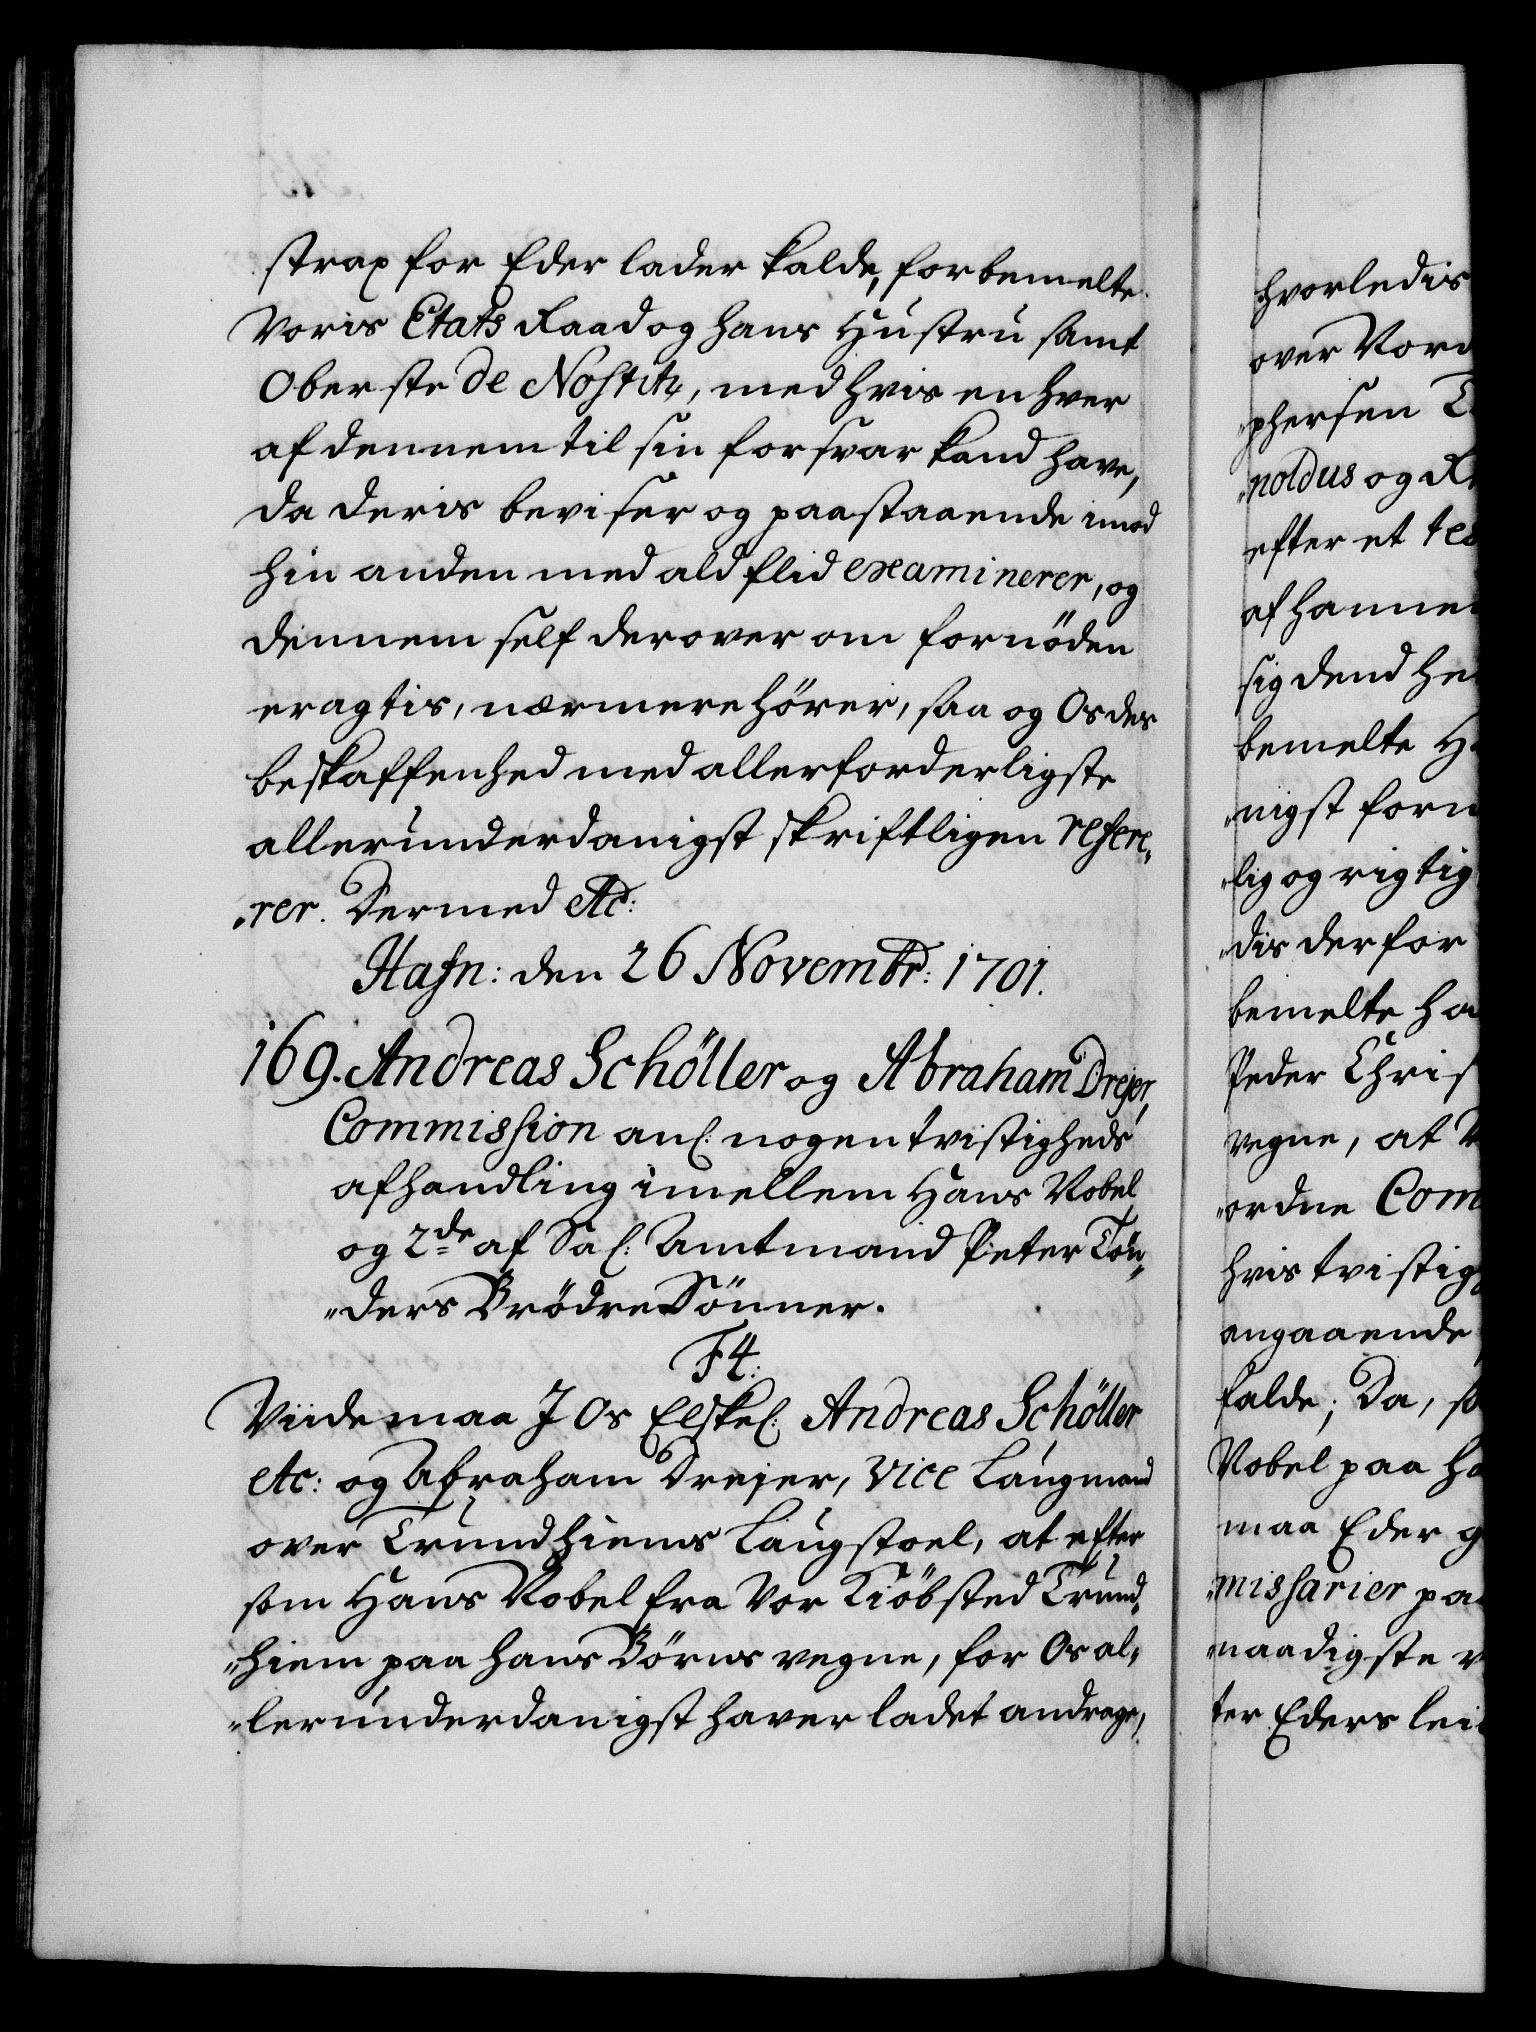 strax for Eder lader kalde, forbemelte
Voris Etats Raad og hans Hustru samt
Oberste de Nostitz, med hvis en hver
af dennem til sin forsvar kand have,
da deris beviser og paastaaende imod
hin anden med ald flid examinerer, og
dennem self derover om fornöden
eragtis, nærmere hörer, saa og Os des
beskaffenhed med allerforderligste
allerunderdanigst skriftligen refere„
„rer. Dermed etc:
Hafn: den 26 Novembr: 1701.
169. Andreas Schöller og Abraham Drejer,
Commission anl: nogen tvistigheds
afhandling imellem Hans Nobel
og 2de af Sal: Amtmand Peter Tön„
„ders Brödre Sönner.
F4:
Viide maa I Os Elskel: Andreas Schöller
etc: og Abraham Drejer, Vice Laugmand
over Trundhiems Laugstoel, at efter
som Hans Nobel fra Vor Kiöbsted Trund„
„hiem paa hans Börns vegne, for Os al„
„lerunderdanigst haver ladet andrage,
hvorledis
over Vore
„phersen T
„noldus og R
efter et tes
af hannem
sig dend he
bemelte H
„nigst forn
„lig og rigtig
„dis derfor
bemelte ha
Peder Chris
vegne, at V
„ordne Com
hvis tvistig
angaaende
falde; Da, so
Nobel paa ha
maa Eder g
„missarier pa
„naadigste v
ter Eders lei